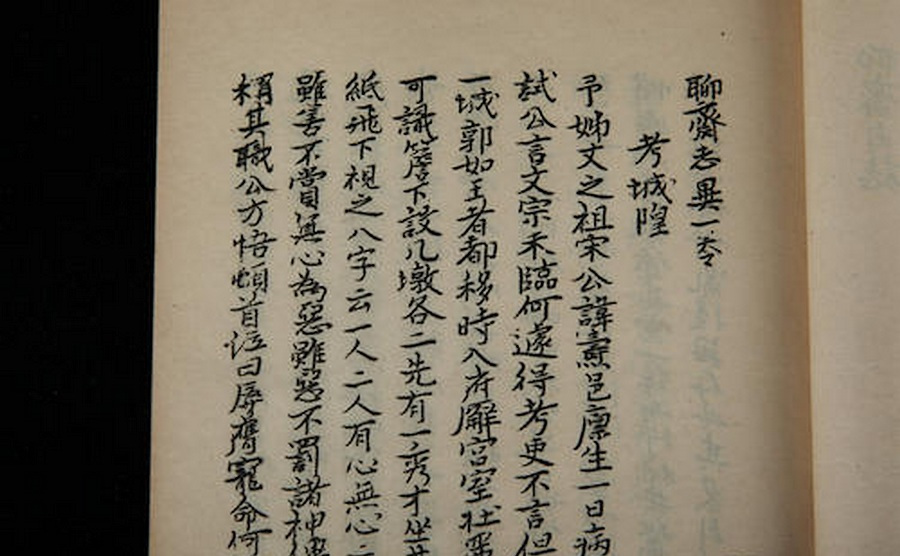 聊齋志異一卷
考城隍
予姊丈之祖宋公諱燾邑廩生一日病
試公言文宗未臨何遽得考更不言但
一城郭如王者都移時入府廨宮室壯麗
可識簷下設几墩各二先有一秀才坐其
紙飛下視之八字云一人二人有心無心二
雖善不賞無心為惡雖惡不罰諸神傳
稱其職公方悟頓首泣曰辱膺寵命何